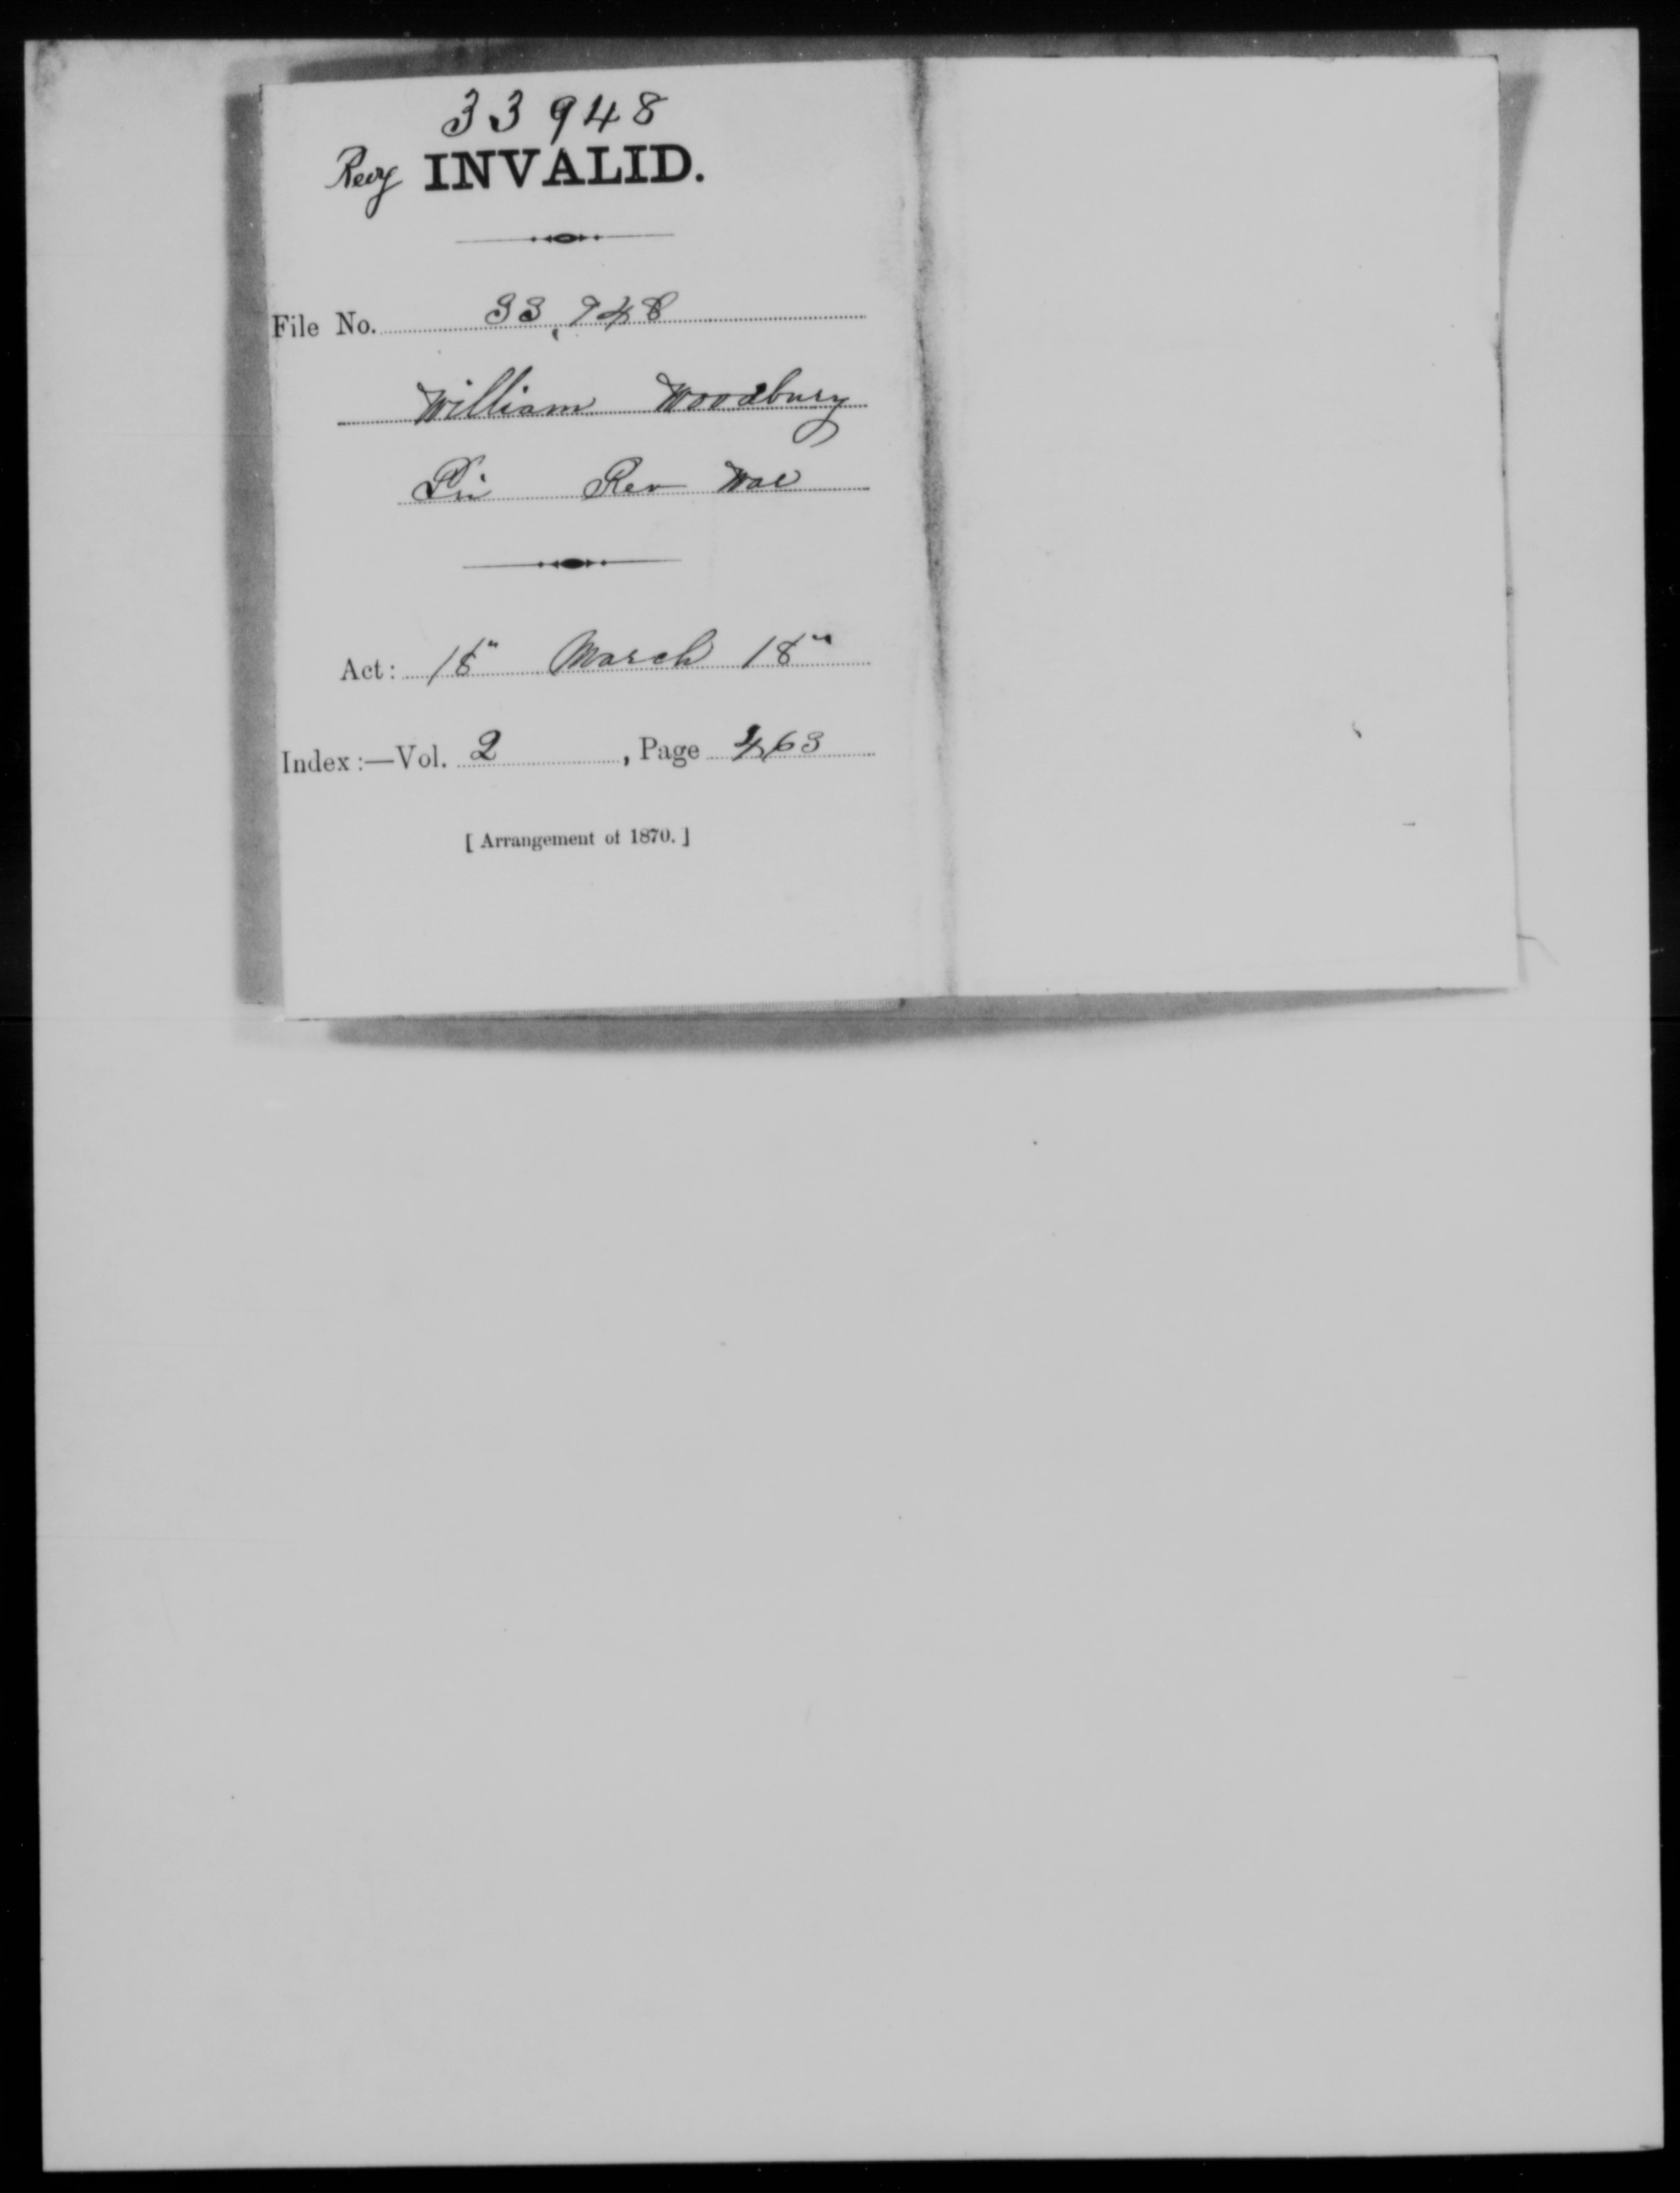 33948
Rev INVALID.
File No. 33,948
William Woodbury
Pri Rev War
Act: 18" March 18"
Index:—Vol. 2, Page 463
[Arrangement of 1870.]